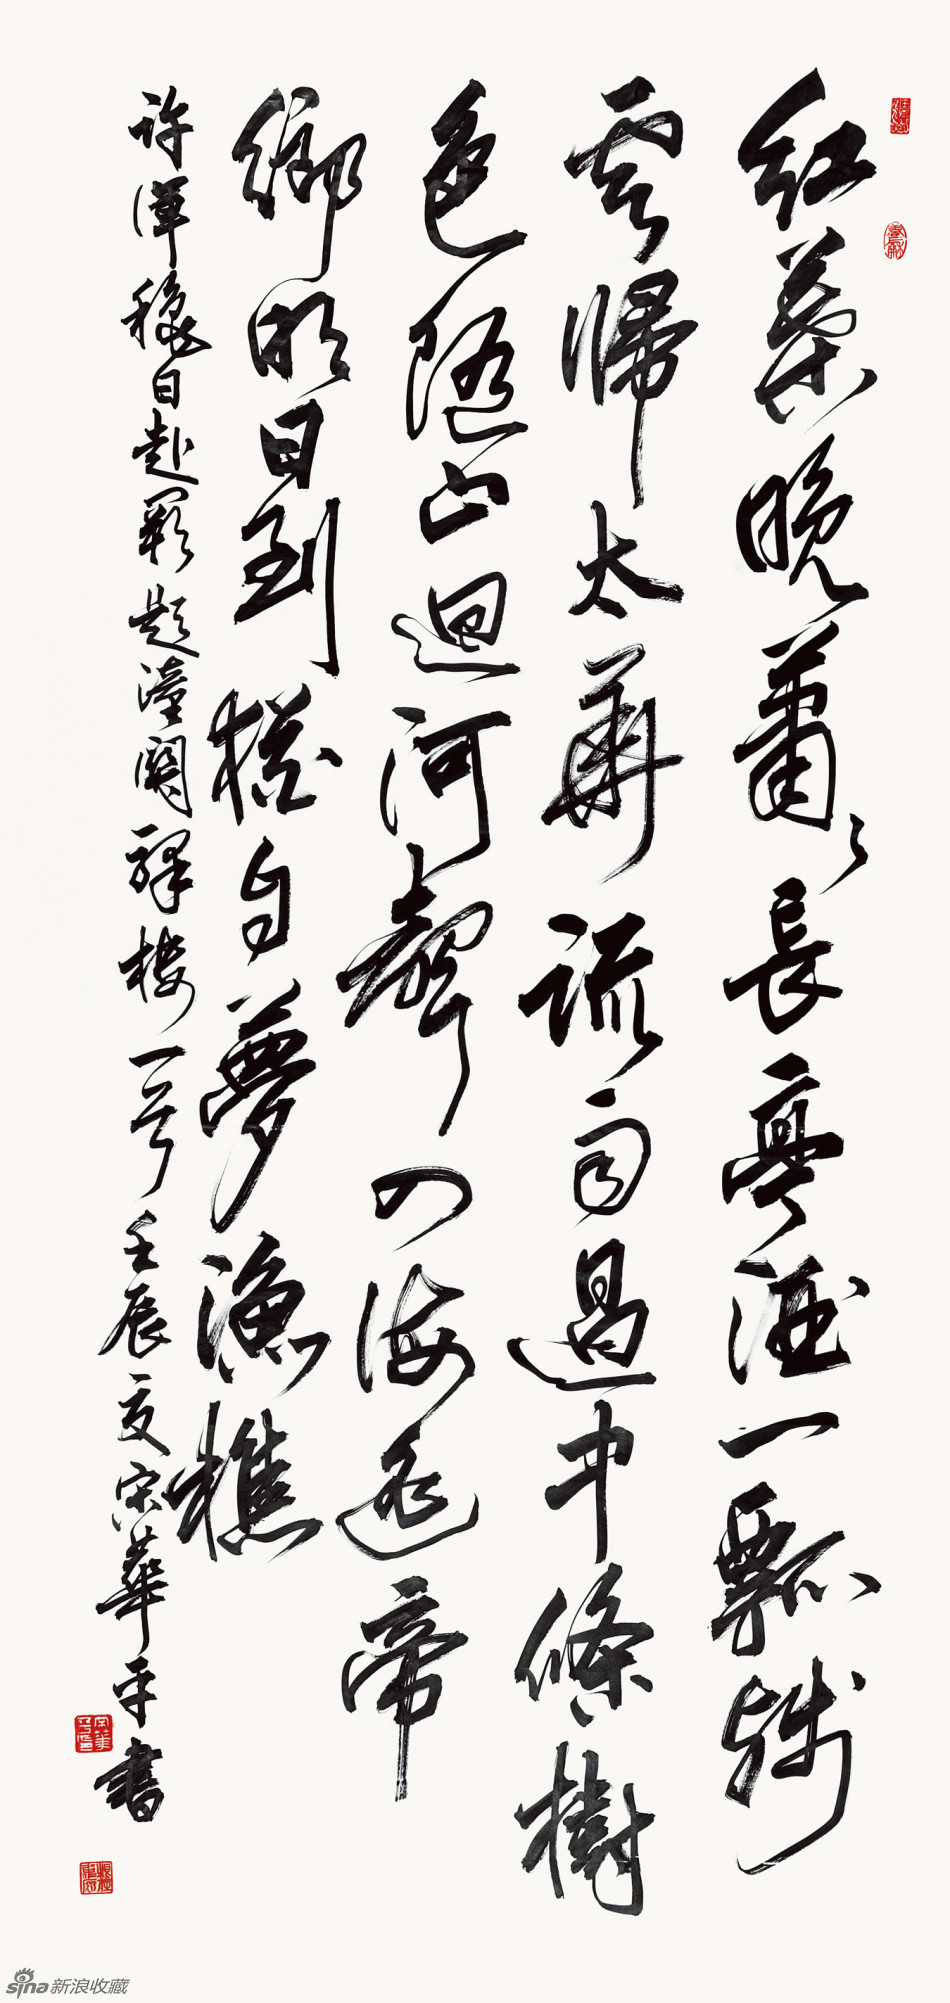 紅葉晚蕭〻長亭酒一瓢殘
雲歸太華疏雨過中條樹
色隨山迴河聲入海遥帝
鄉明日到猶自夢漁樵
許渾穐日赴闕題潼關驛樓一首壬辰夏宋華平書
sina新浪收藏